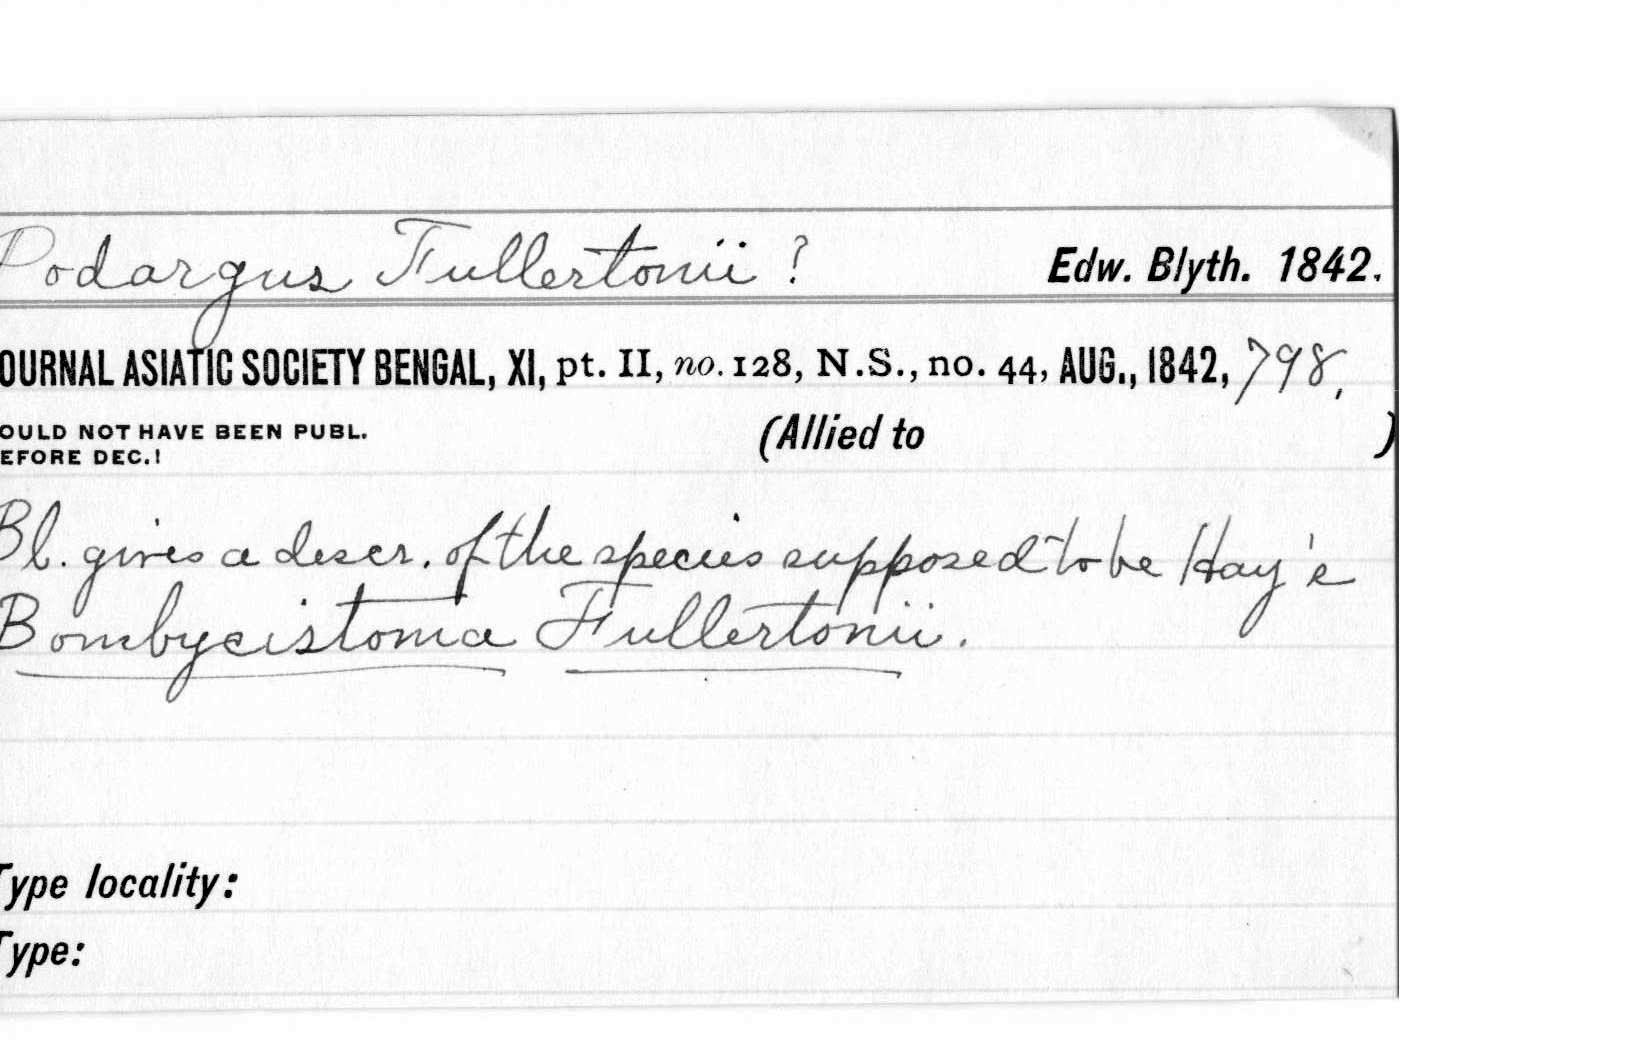 Podargus Fullertonii ? Edw. Blyth. 1842.
OURNAL ASIATIC SOCIETY BENGAL, XI, pt. II, no. 128, N.S., no. 44, AUG., 1842, 798,
OULD NOT HAVE BEEN PUBL. (Allied to )
EFORE DEC.!
Bl. gives a descr. of the species supposed to be Hay's
Bombycistoma Fullertonii.
Type locality:
Type: